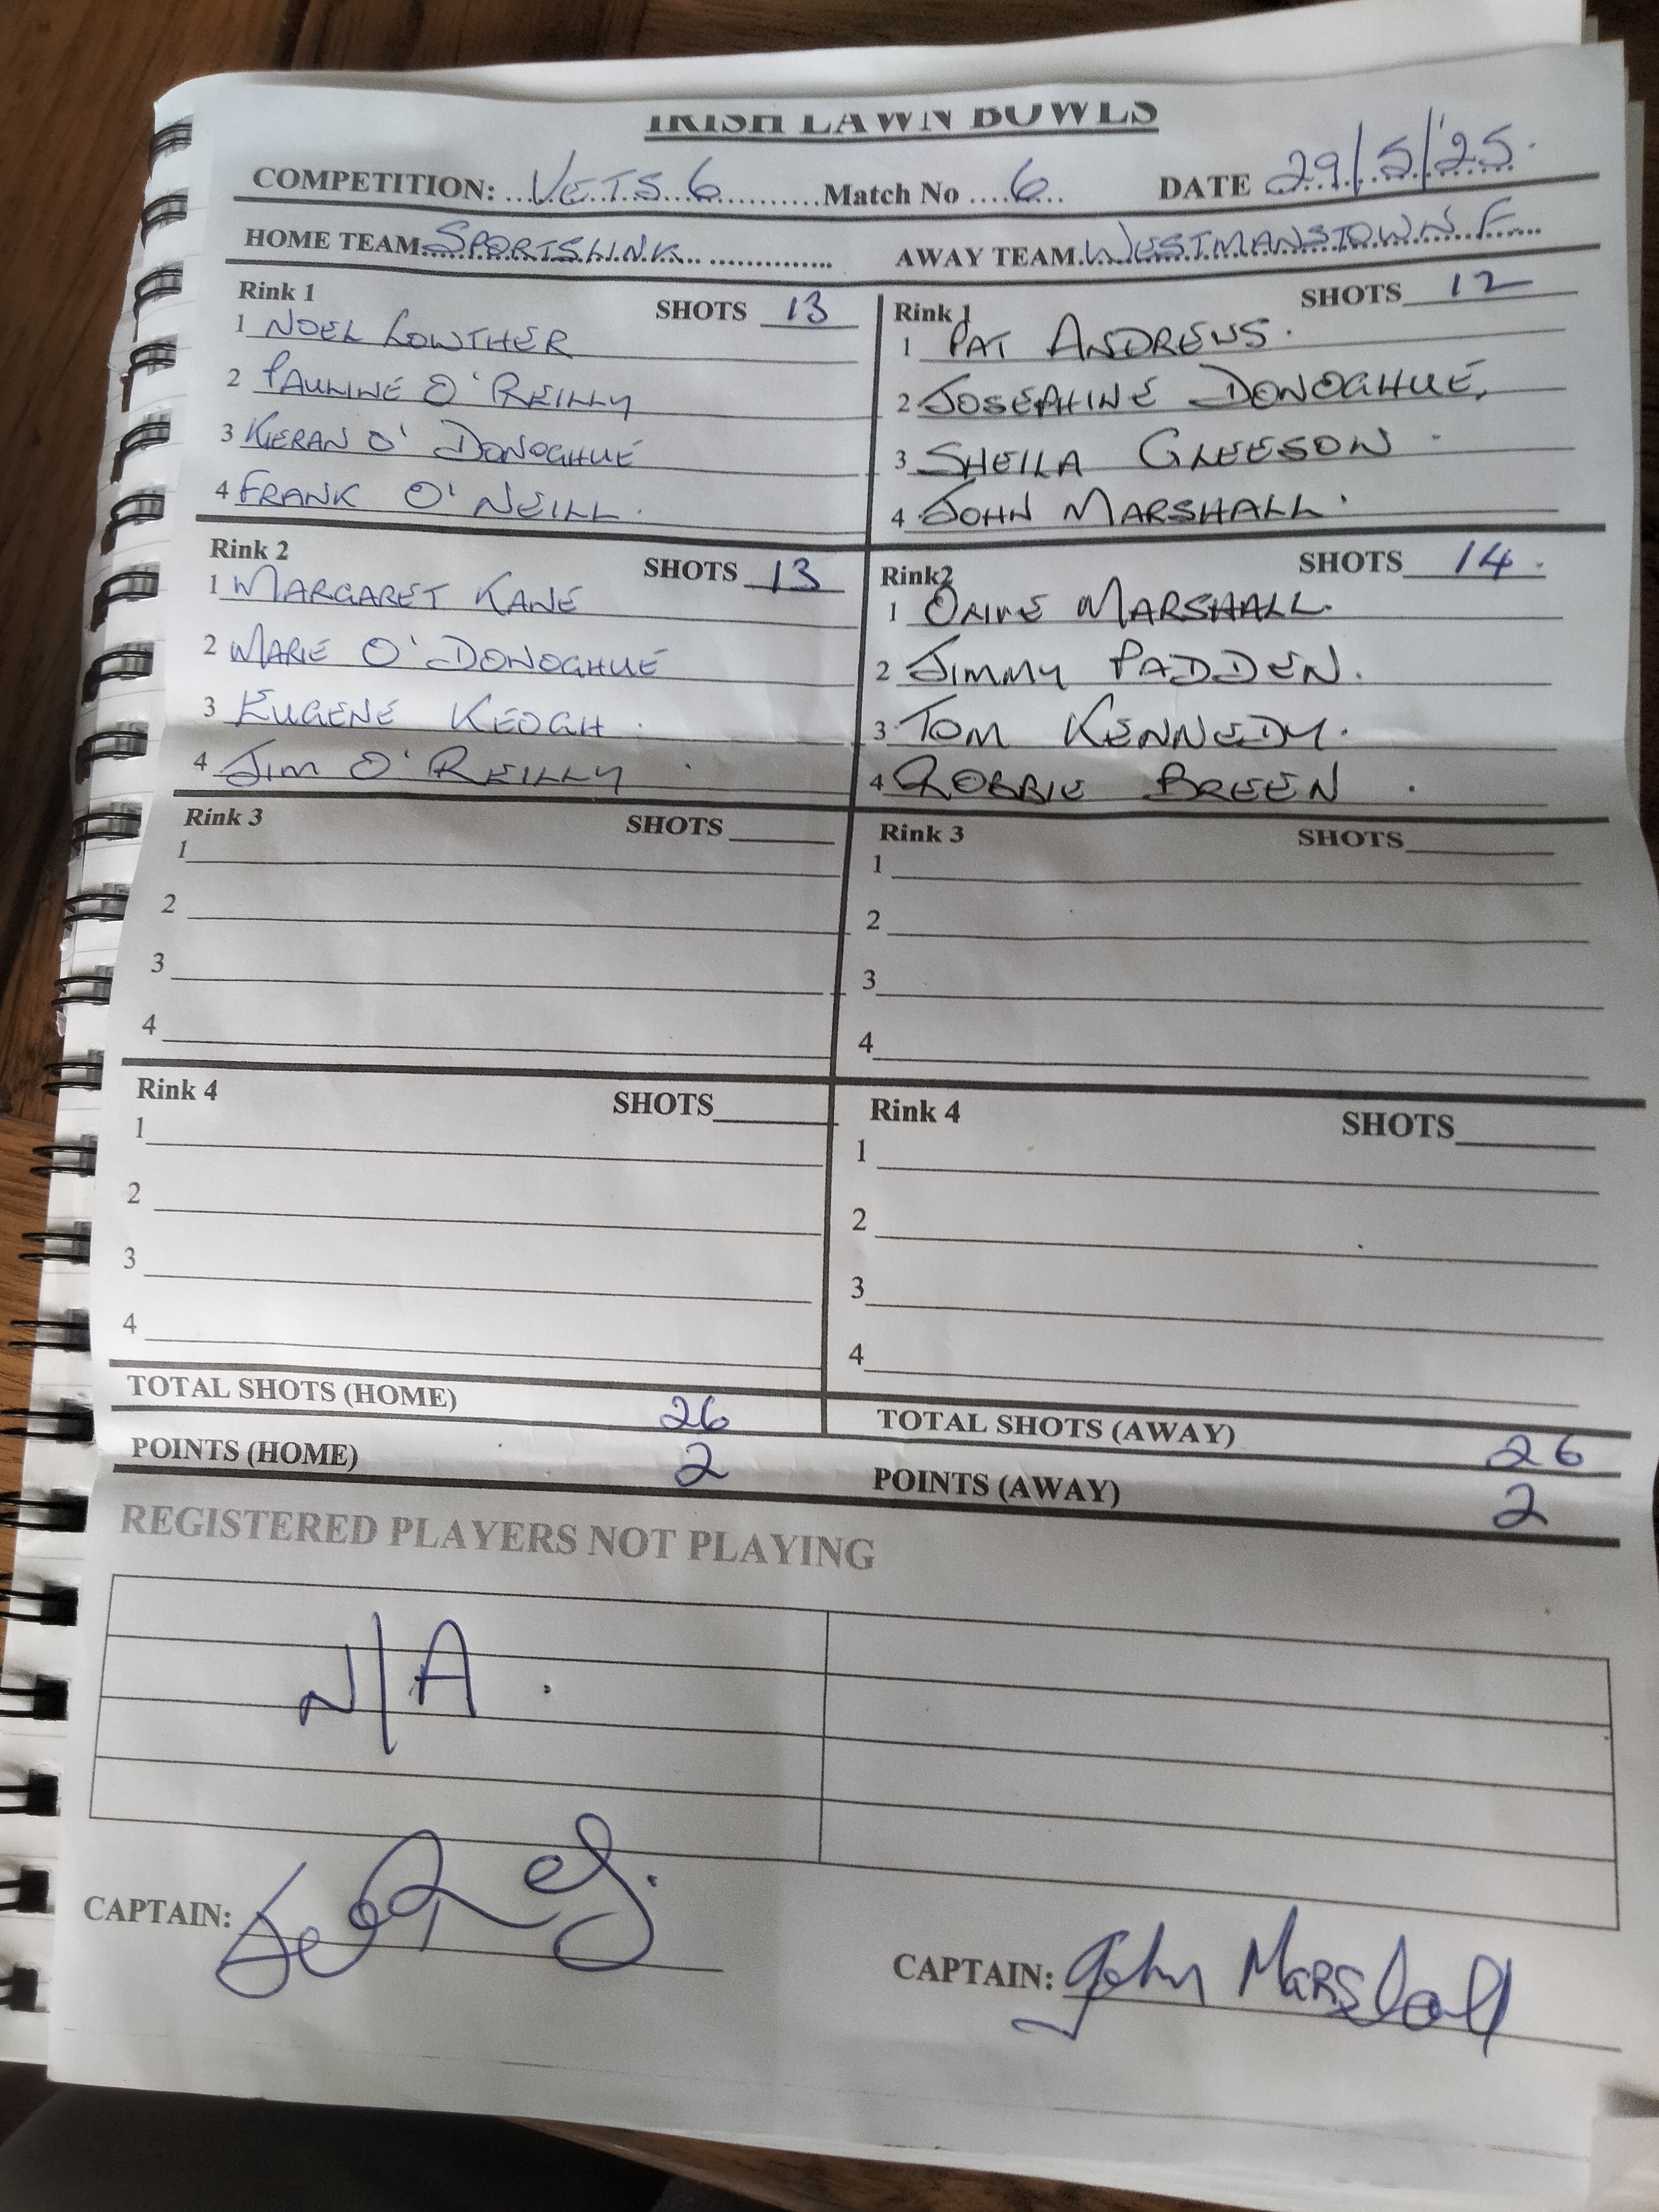 IRISH LAWN BOWLS
COMPETITION: ...V.E.T.S. 6...........Match No ....6.... DATE 29/5/'25.
HOME TEAM..SPORTSLINK.. .............. AWAY TEAM.WESTMANSTOWN F....
Rink 1 SHOTS 13
1 NOEL LOWTHER
2 PAULINE O'REILLY
3 KIERAN O'DONOGHUE
4 FRANK O'NEILL.
Rink 1 SHOTS 12
1 PAT ANDREWS.
2 JOSEPHINE DONOGHUE.
3 SHEILA GLEESON.
4 JOHN MARSHALL.
Rink 2 SHOTS 13
1 MARGARET KANE
2 MARIE O'DONOGHUE
3 EUGENE KEOGH.
4 JIM O'REILLY.
Rink2 SHOTS 14.
1 OLIVE MARSHALL.
2 JIMMY PADDEN.
3 TOM KENNEDY.
4 ROBBIE BREEN.
Rink 3 SHOTS
1
2
3
4
Rink 3 SHOTS
1
2
3
4
Rink 4 SHOTS
1
2
3
4
Rink 4 SHOTS
1
2
3
4
TOTAL SHOTS (HOME) 26 TOTAL SHOTS (AWAY) 26
POINTS (HOME) 2 POINTS (AWAY) 2
REGISTERED PLAYERS NOT PLAYING
N/A.
CAPTAIN:
CAPTAIN: John Marshall